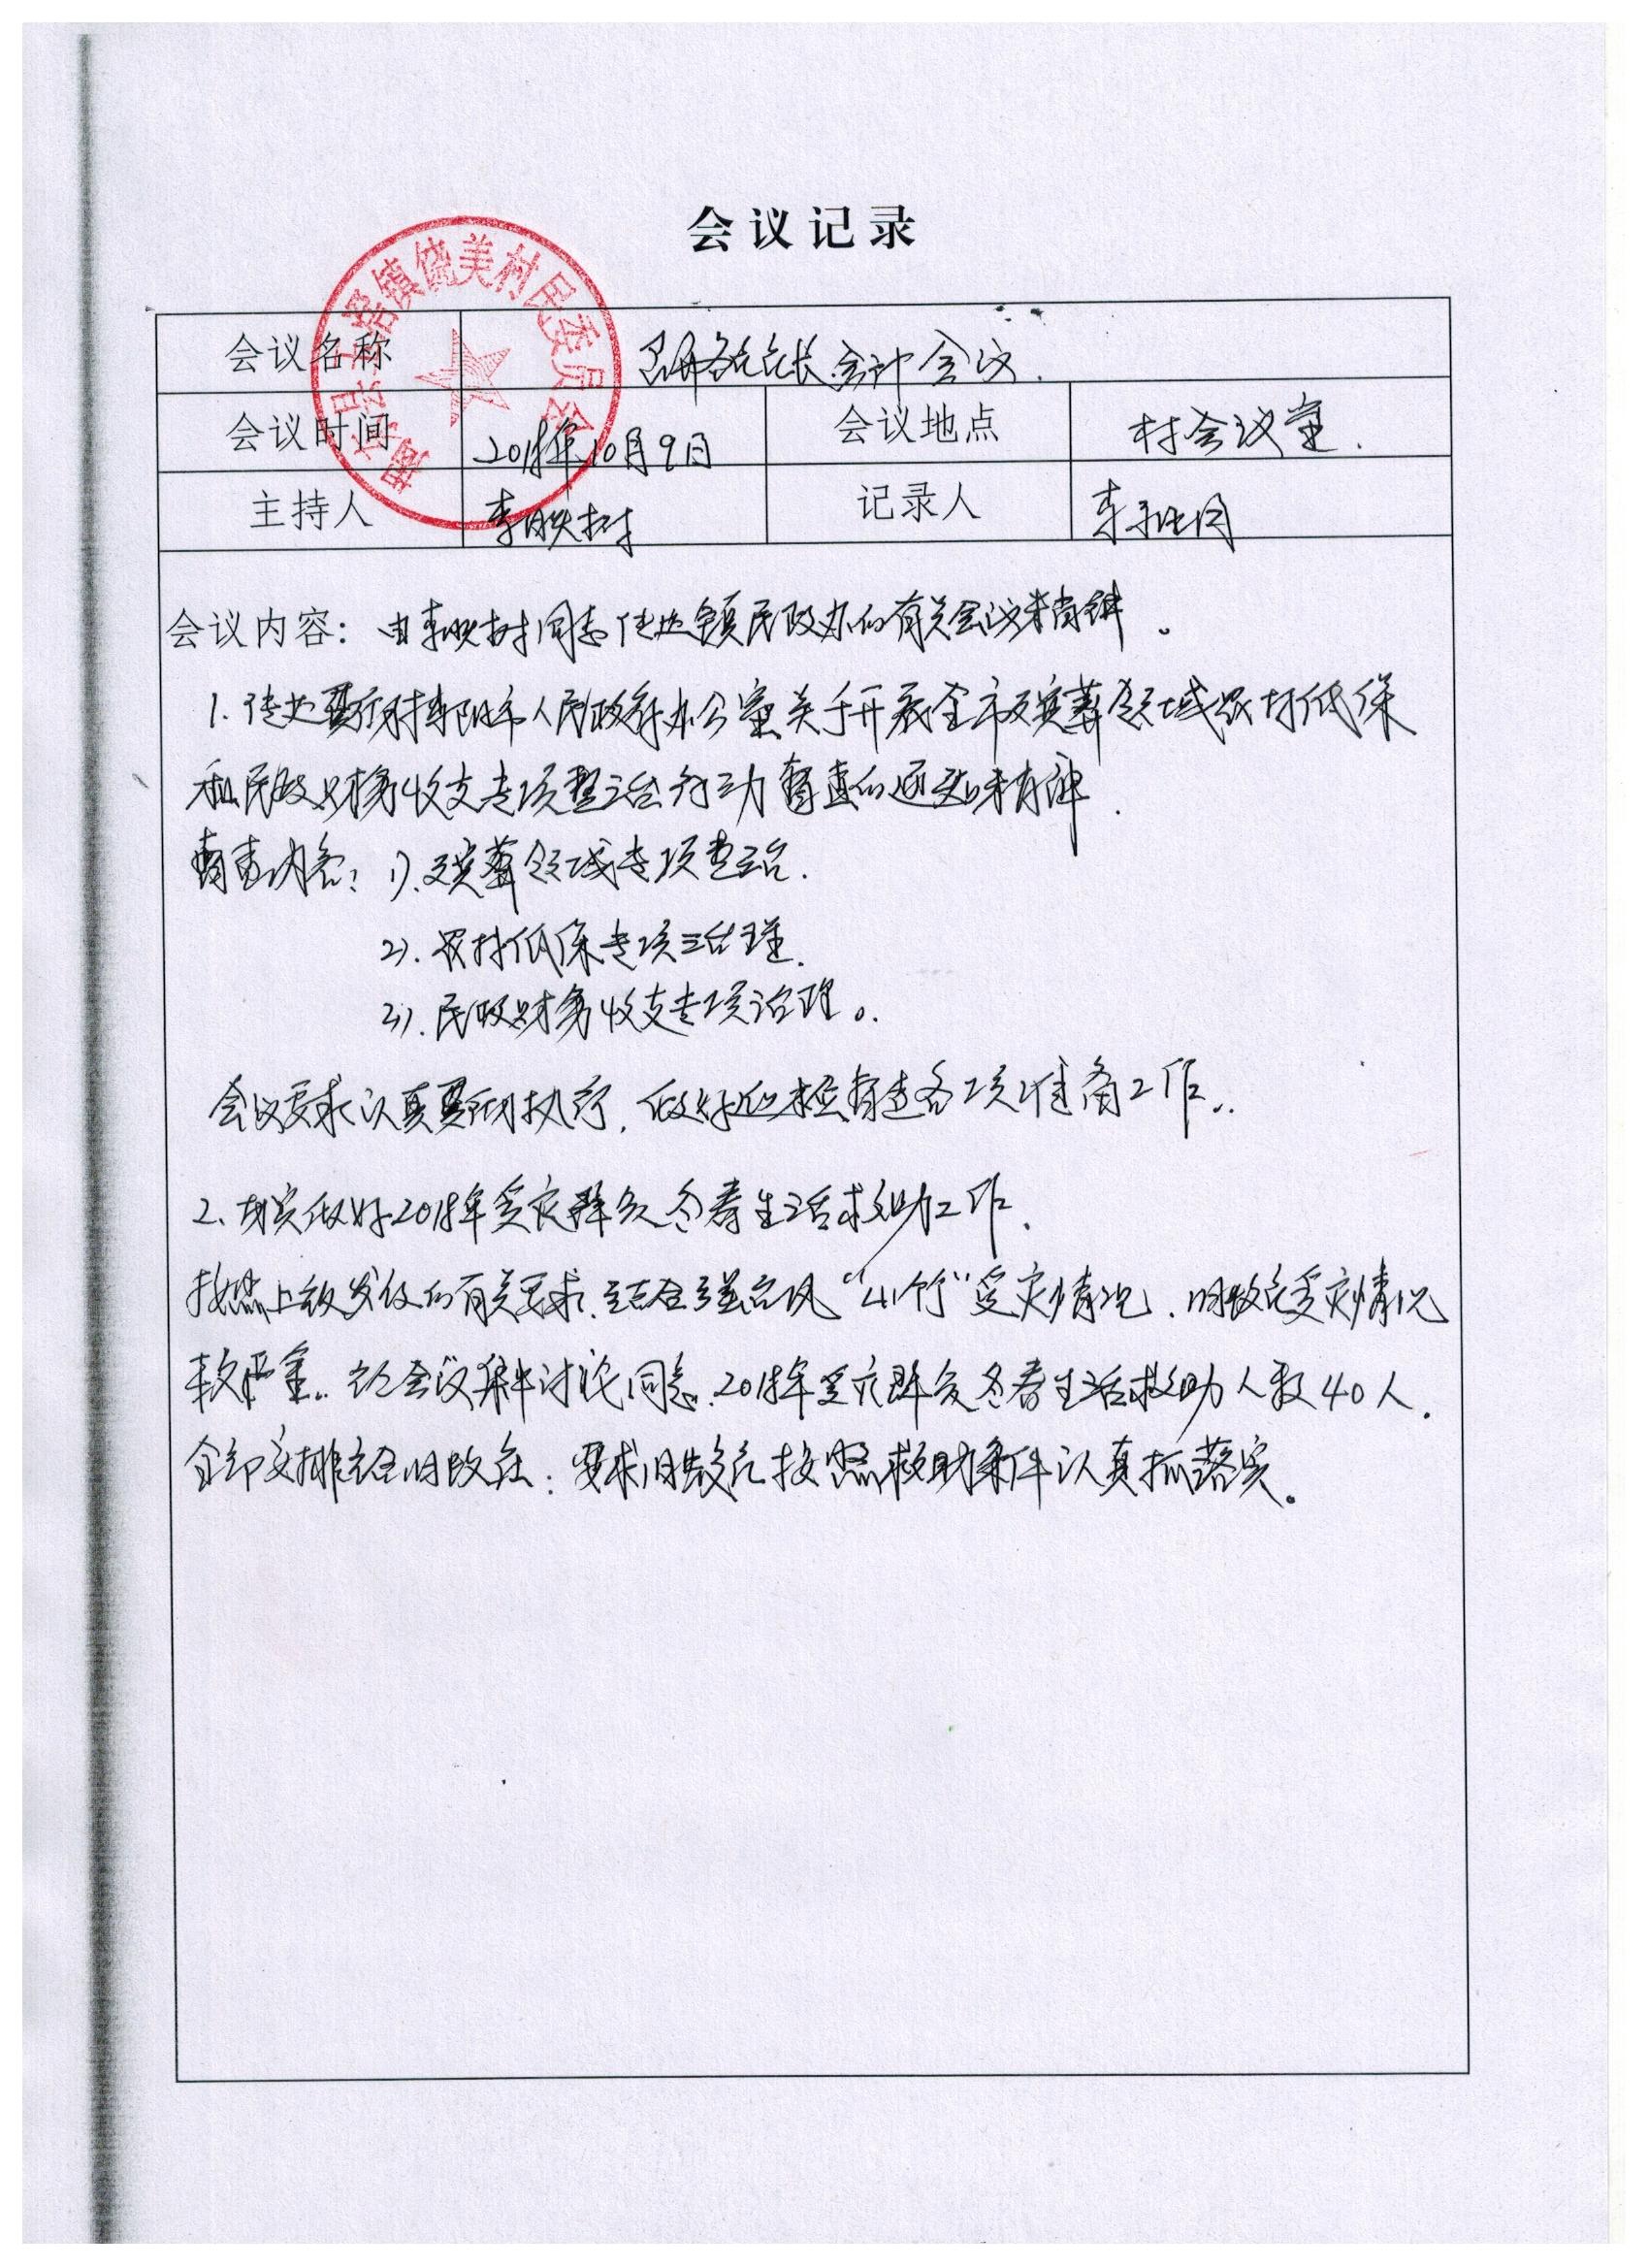 会议记录
镇饶美村民委员会
会议名称
召开各片片长.会计会议.
会议时间
2018年10月9日
会议地点
村会议室.
主持人
李映树
记录人
会议内容：由李映树同志传达镇民政办的有关会议精神。
1.传达贯彻揭阳市人民政府办公室关于开展全市殡葬领域农村低保
和民政财务收支专项整治行动督查的通知精神.
督查内容：1).殡葬领域专项整治.
2).农村低保专项治理.
3).民政财务收支专项治理。
会议要求认真贯彻执行，做好迎接督查各项准备工作..
2.切实做好2018年受灾群众冬春生活救助工作.
按照上级发放的有关要求.结合强台风“山竹”受灾情况.片受灾情况
较严重..经会议集中讨论同意.2018年受灾群众冬春生活救助人数40人.
全部安排在片：要求片按照救助条件认真抓落实。